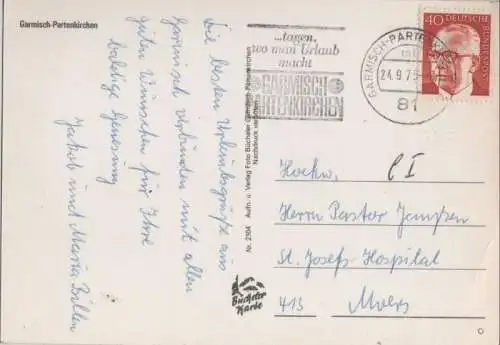 Garmisch-Partenkirchen
Die besten Urlaubsgrüße aus
Garmisch verbunden mit allen
guten Wünschen für Ihre
baldige Genesung
Jakob und Maria Billen
Nr. 2164 Aufn. u. Verlag Foto Bücheler Garmisch-Partenkirchen
Nachdruck verboten
Bücheler
Karte
...tagen,
wo man Urlaub
macht
GARMISCH
PARTENKIRCHEN
GARMISCH-PARTENK
24.9.73
81
40 DEUTSCHE
BUNDESPOST
CI
Hochw.
Herrn Pastor Janßen
St. Josefs-Hospital
413 Moers